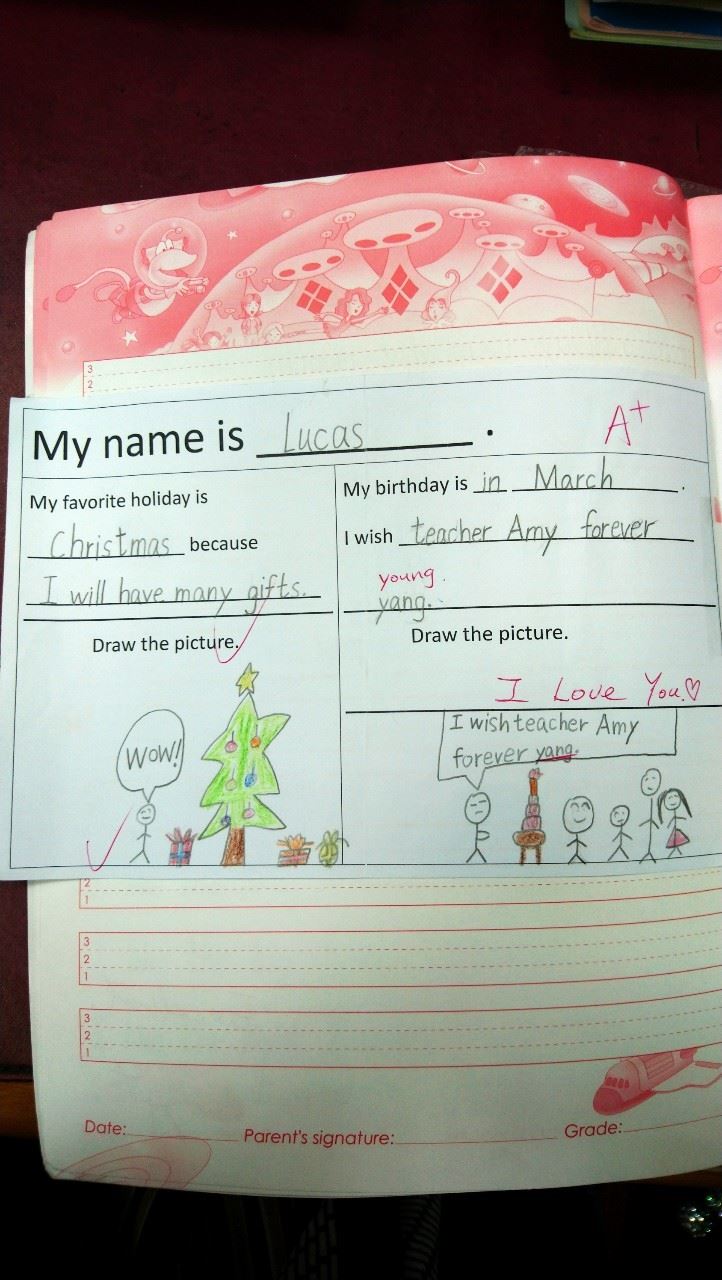 3
2
My name is Lucas.
A+
My favorite holiday is
Christmas because
I will have many gifts.
Draw the picture.
WOW!
My birthday is in March.
I wish teacher Amy forever
young.
yang.
Draw the picture.
I Love You♡
I wish teacher Amy
forever yang.
2
1
3
2
1
3
2
1
Date: Parent's signature: Grade: